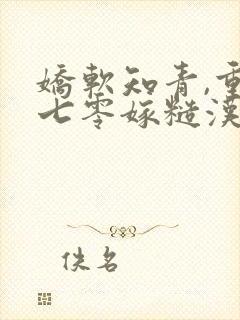 嬌軟知青,重
七零嫁糙漢
佚名